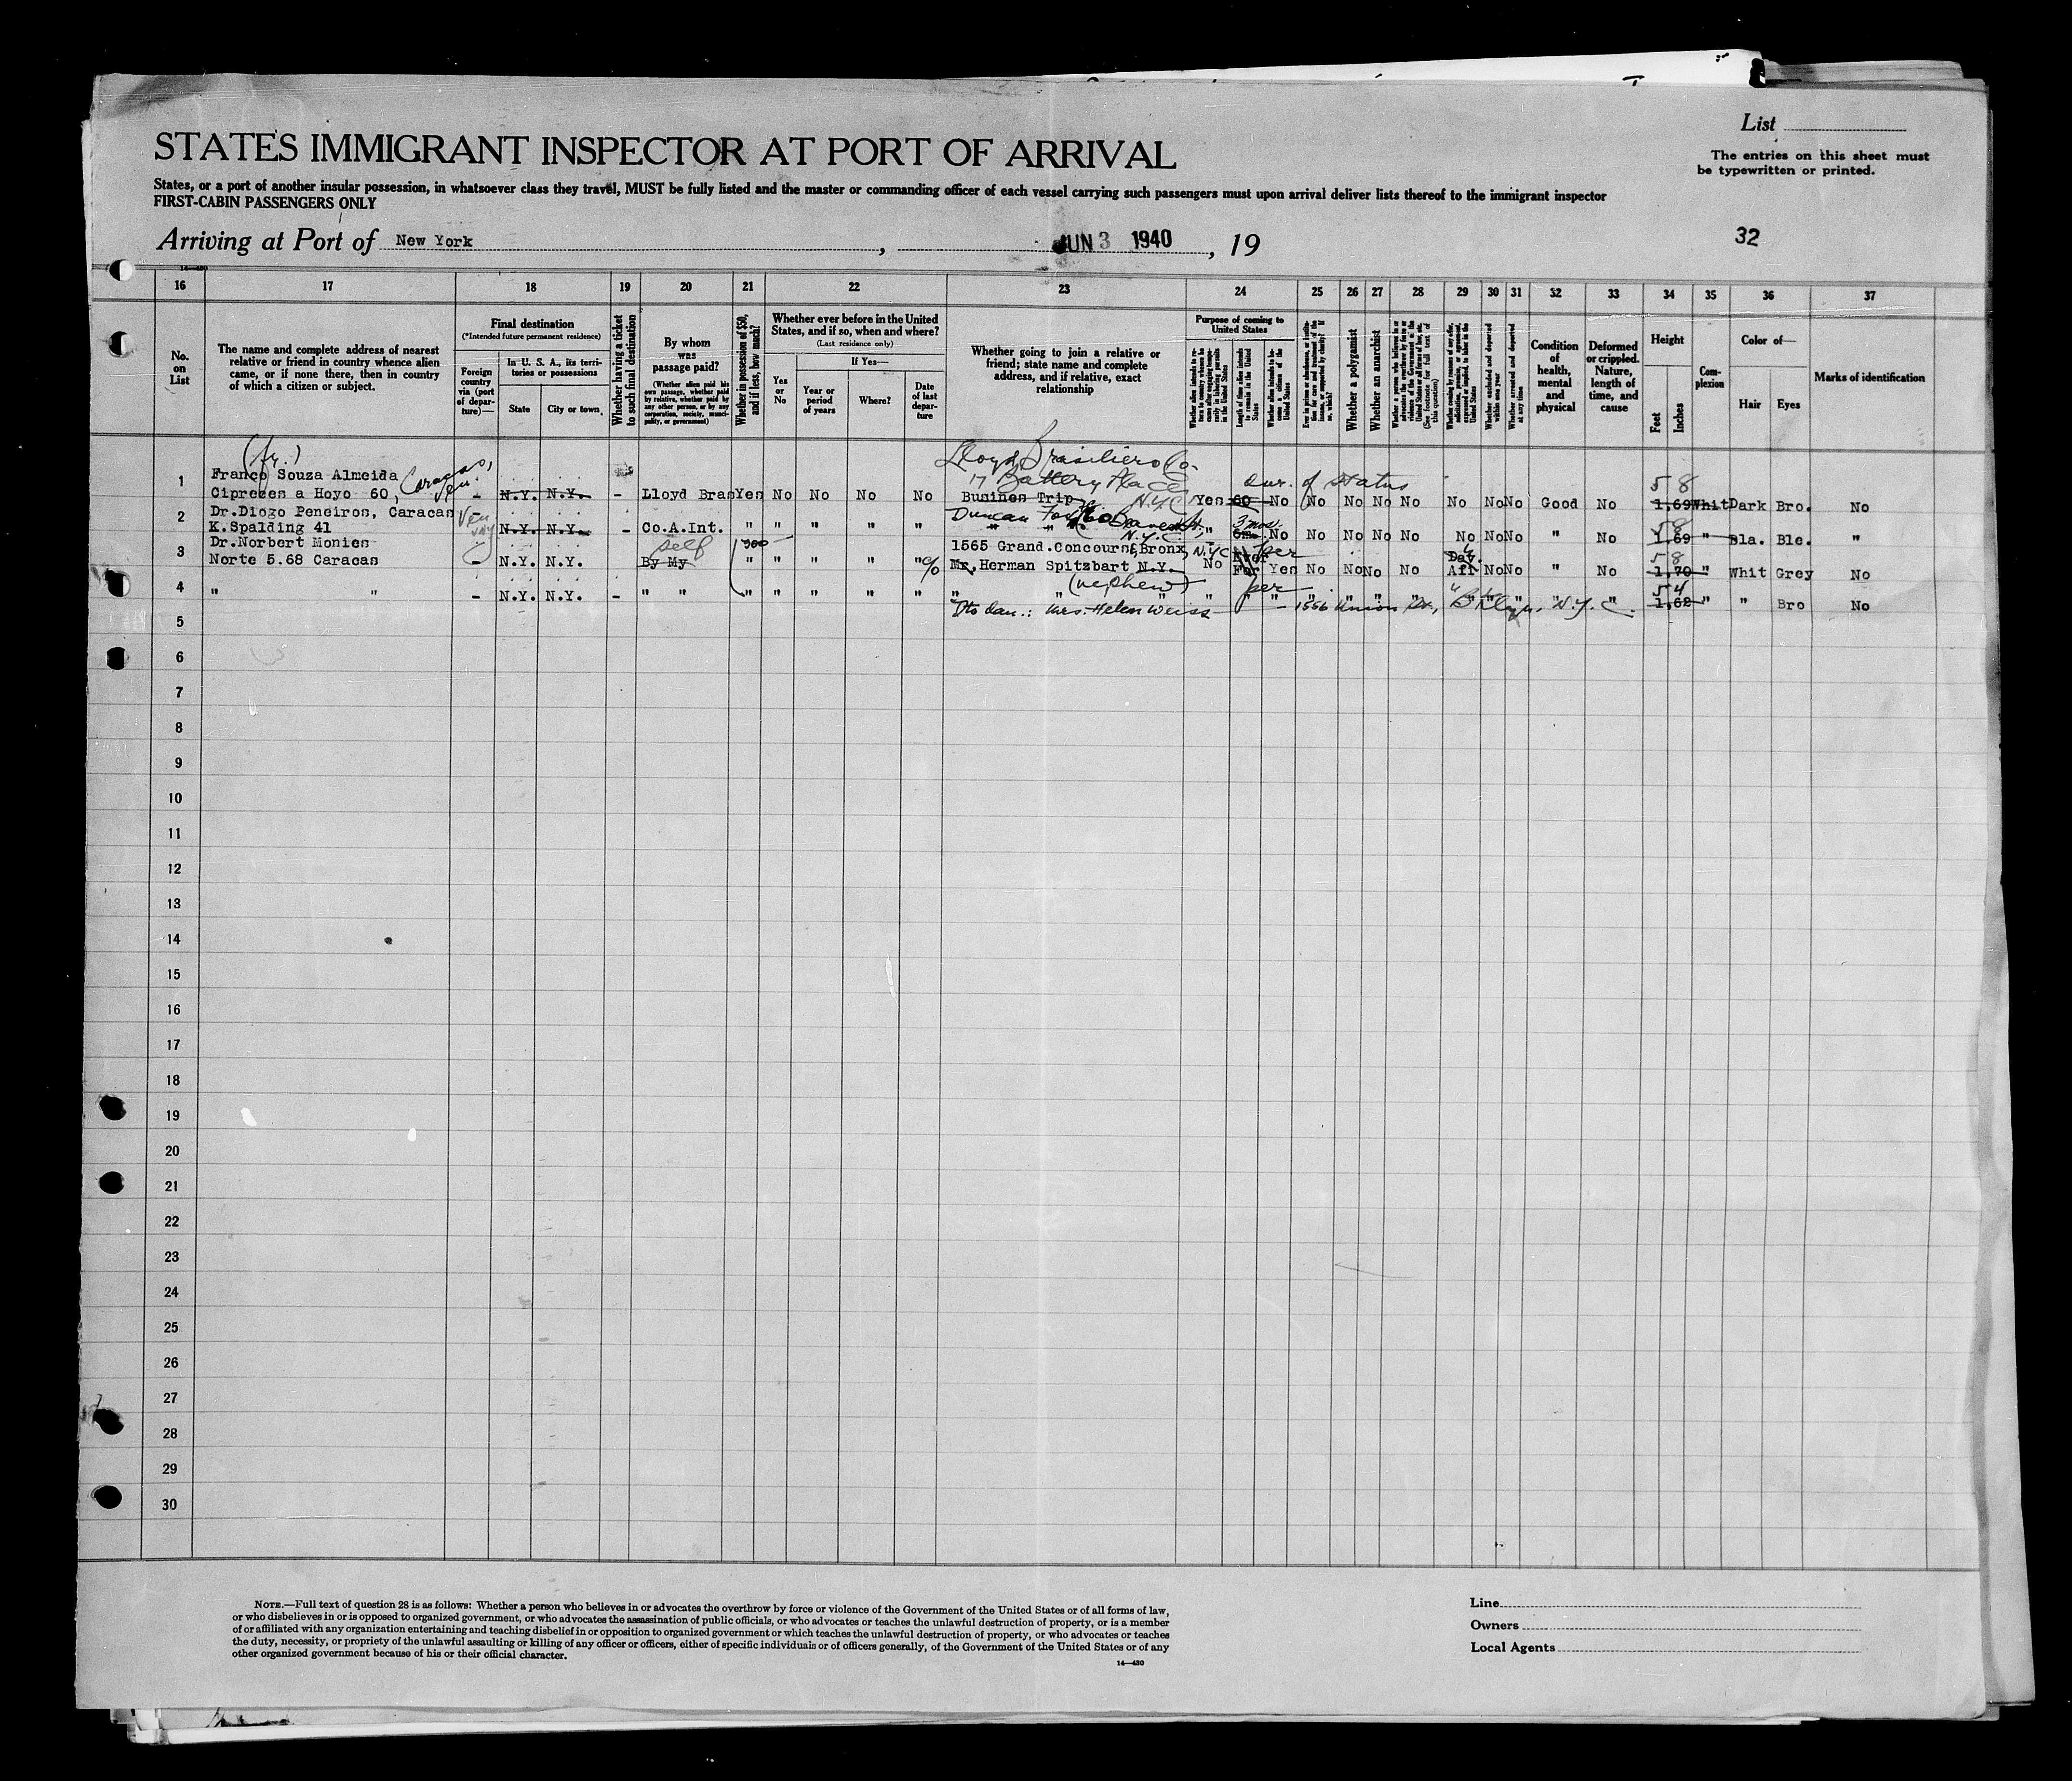 List
The entries on this sheet must
be typewritten or printed.
STATES IMMIGRANT INSPECTOR AT PORT OF ARRIVAL
States, or a port of another insular possession, in whatsoever class they travel, MUST be fully listed and the master or commanding officer of each vessel carrying such passengers must upon arrival deliver lists thereof to the immigrant inspector
FIRST-CABIN PASSENGERS ONLY
Arriving at Port of New York, JUN 3 1940, 19
32
14—430
16 17 18 19 20 21 22 23 24 25 26 27 28 29 30 31 32 33 34 35 36 37
No. on List
The name and complete address of nearest
relative or friend in country whence alien
came, or if none there, then in country
of which a citizen or subject.
Final destination
(*Intended future permanent residence)
Foreign country via (port of departure)—
In U. S. A., its territories or possessions
State
City or town
Whether having a ticket to such final destination
By whom was passage paid?
(Whether alien paid his own passage, whether paid by relative, whether paid by any other person, or by any corporation, society, municipality, or government)
Whether in possession of $50, and if less, how much?
Whether ever before in the United States, and if so, when and where?
(Last residence only)
Yes or No
If Yes—
Year or period of years
Where?
Date of last departure
Whether going to join a relative or
friend; state name and complete
address, and if relative, exact
relationship
Purpose of coming to United States
Whether alien intends to return to country whence he came after engaging temporarily in laboring pursuits in the United States
Length of time alien intends to remain in the United States
Whether alien intends to become a citizen of the United States
Whether a polygamist
Whether an anarchist
Whether excluded and deported within one year
Whether arrested and deported at any time
Condition of health, mental and physical
Deformed or crippled. Nature, length of time, and cause
Height
Feet
Inches
Complexion
Color of—
Hair
Eyes
Marks of identification
(fr.)
Lloyd Brasiliero Co.
17 Battery Place
N.Y.C
Dur. of Status
5 8
1 Franco Souza Almeida
Caracas, Ven.
Ciprezes a Hoyo 60, - N.Y. N.Y. - Lloyd Bras Yes No No No No Busines Trip Yes 60 No No No No No No No No Good No 1,69 Whit Dark Bro. No
2 Dr.Diogo Peneiros, Caracas
Ven
Duncan
N.Y.C.
3 mos.
5 8
K.Spalding 41 N.Y. N.Y. - Co.A.Int. " " " " " " " 6m. No No No No No No No No " No 1,69 " Bla. Ble. "
3 Dr.Norbert Monies
self
1565 Grand.Concourse, Bronx, N.Y.C
per
5 8
Norte 5.68 Caracas - N.Y. N.Y. By My " " " " " c/o Mr, Herman Spitzbart N.Y. No For Yes No No No No No No " No 1,70 " Whit Grey No
(nephew)
per
5 4
4 " " - N.Y. N.Y. - " " " " " " " " " " " " " " " " " " " " 1,62 " " Bro No
Dto dau.: Mrs. Helen Weiss - 1556 Union St., Bklyn. N.Y.C.
5
6
7
8
9
10
11
12
13
14
15
16
17
18
19
20
21
22
23
24
25
26
27
28
29
30
NOTE.—Full text of question 28 is as follows: Whether a person who believes in or advocates the overthrow by force or violence of the Government of the United States or of all forms of law,
or who disbelieves in or is opposed to organized government, or who advocates the assassination of public officials, or who advocates or teaches the unlawful destruction of property, or is a member
of or affiliated with any organization entertaining and teaching disbelief in or opposition to organized government or which teaches the unlawful destruction of property, or who advocates or teaches
the duty, necessity, or propriety of the unlawful assaulting or killing of any officer or officers, either of specific individuals or of officers generally, of the Government of the United States or of any
other organized government because of his or their official character.
14—430
Line
Owners
Local Agents